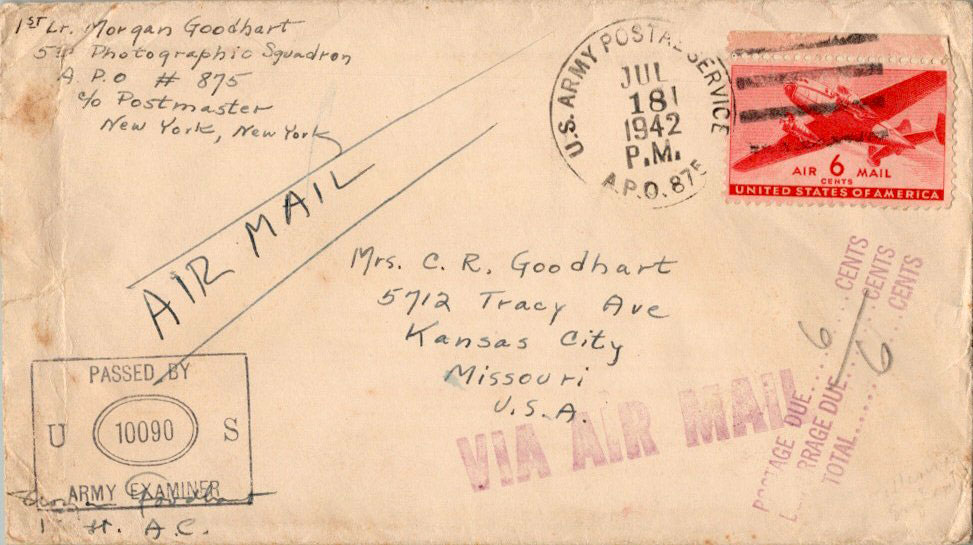 1ST Lt. Morgan Goodhart
5th Photographic Squadron
A.P.O # 875
c/o Postmaster
New York, New York
U.S. ARMY POSTAL SERVICE
JUL
18
1942
P.M.
A.P.O. 875
AIR 6 MAIL
CENTS
UNITED STATES OF AMERICA
AIR MAIL
Mrs. C. R. Goodhart
5712 Tracy Ave
Kansas City
Missouri
U.S.A.
POSTAGE DUE.....6...CENTS
DUE......CENTS
TOTAL......6...CENTS
VIA AIR MAIL
PASSED BY
U 10090 S
ARMY EXAMINER
Morgan Goodhart
1st Lt. A.C.